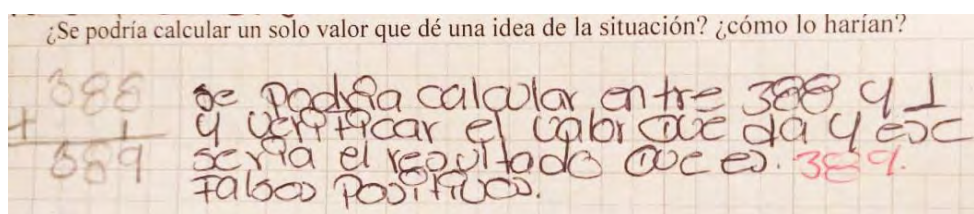 ¿Se podría calcular un solo valor que dé una idea de la situación? ¿cómo lo harían?
388
+ 1
389
se podría calcular entre 388 y 1
y verificar el valor que da y ese
sería el resultado que es. 389.
Falsos Positivos.